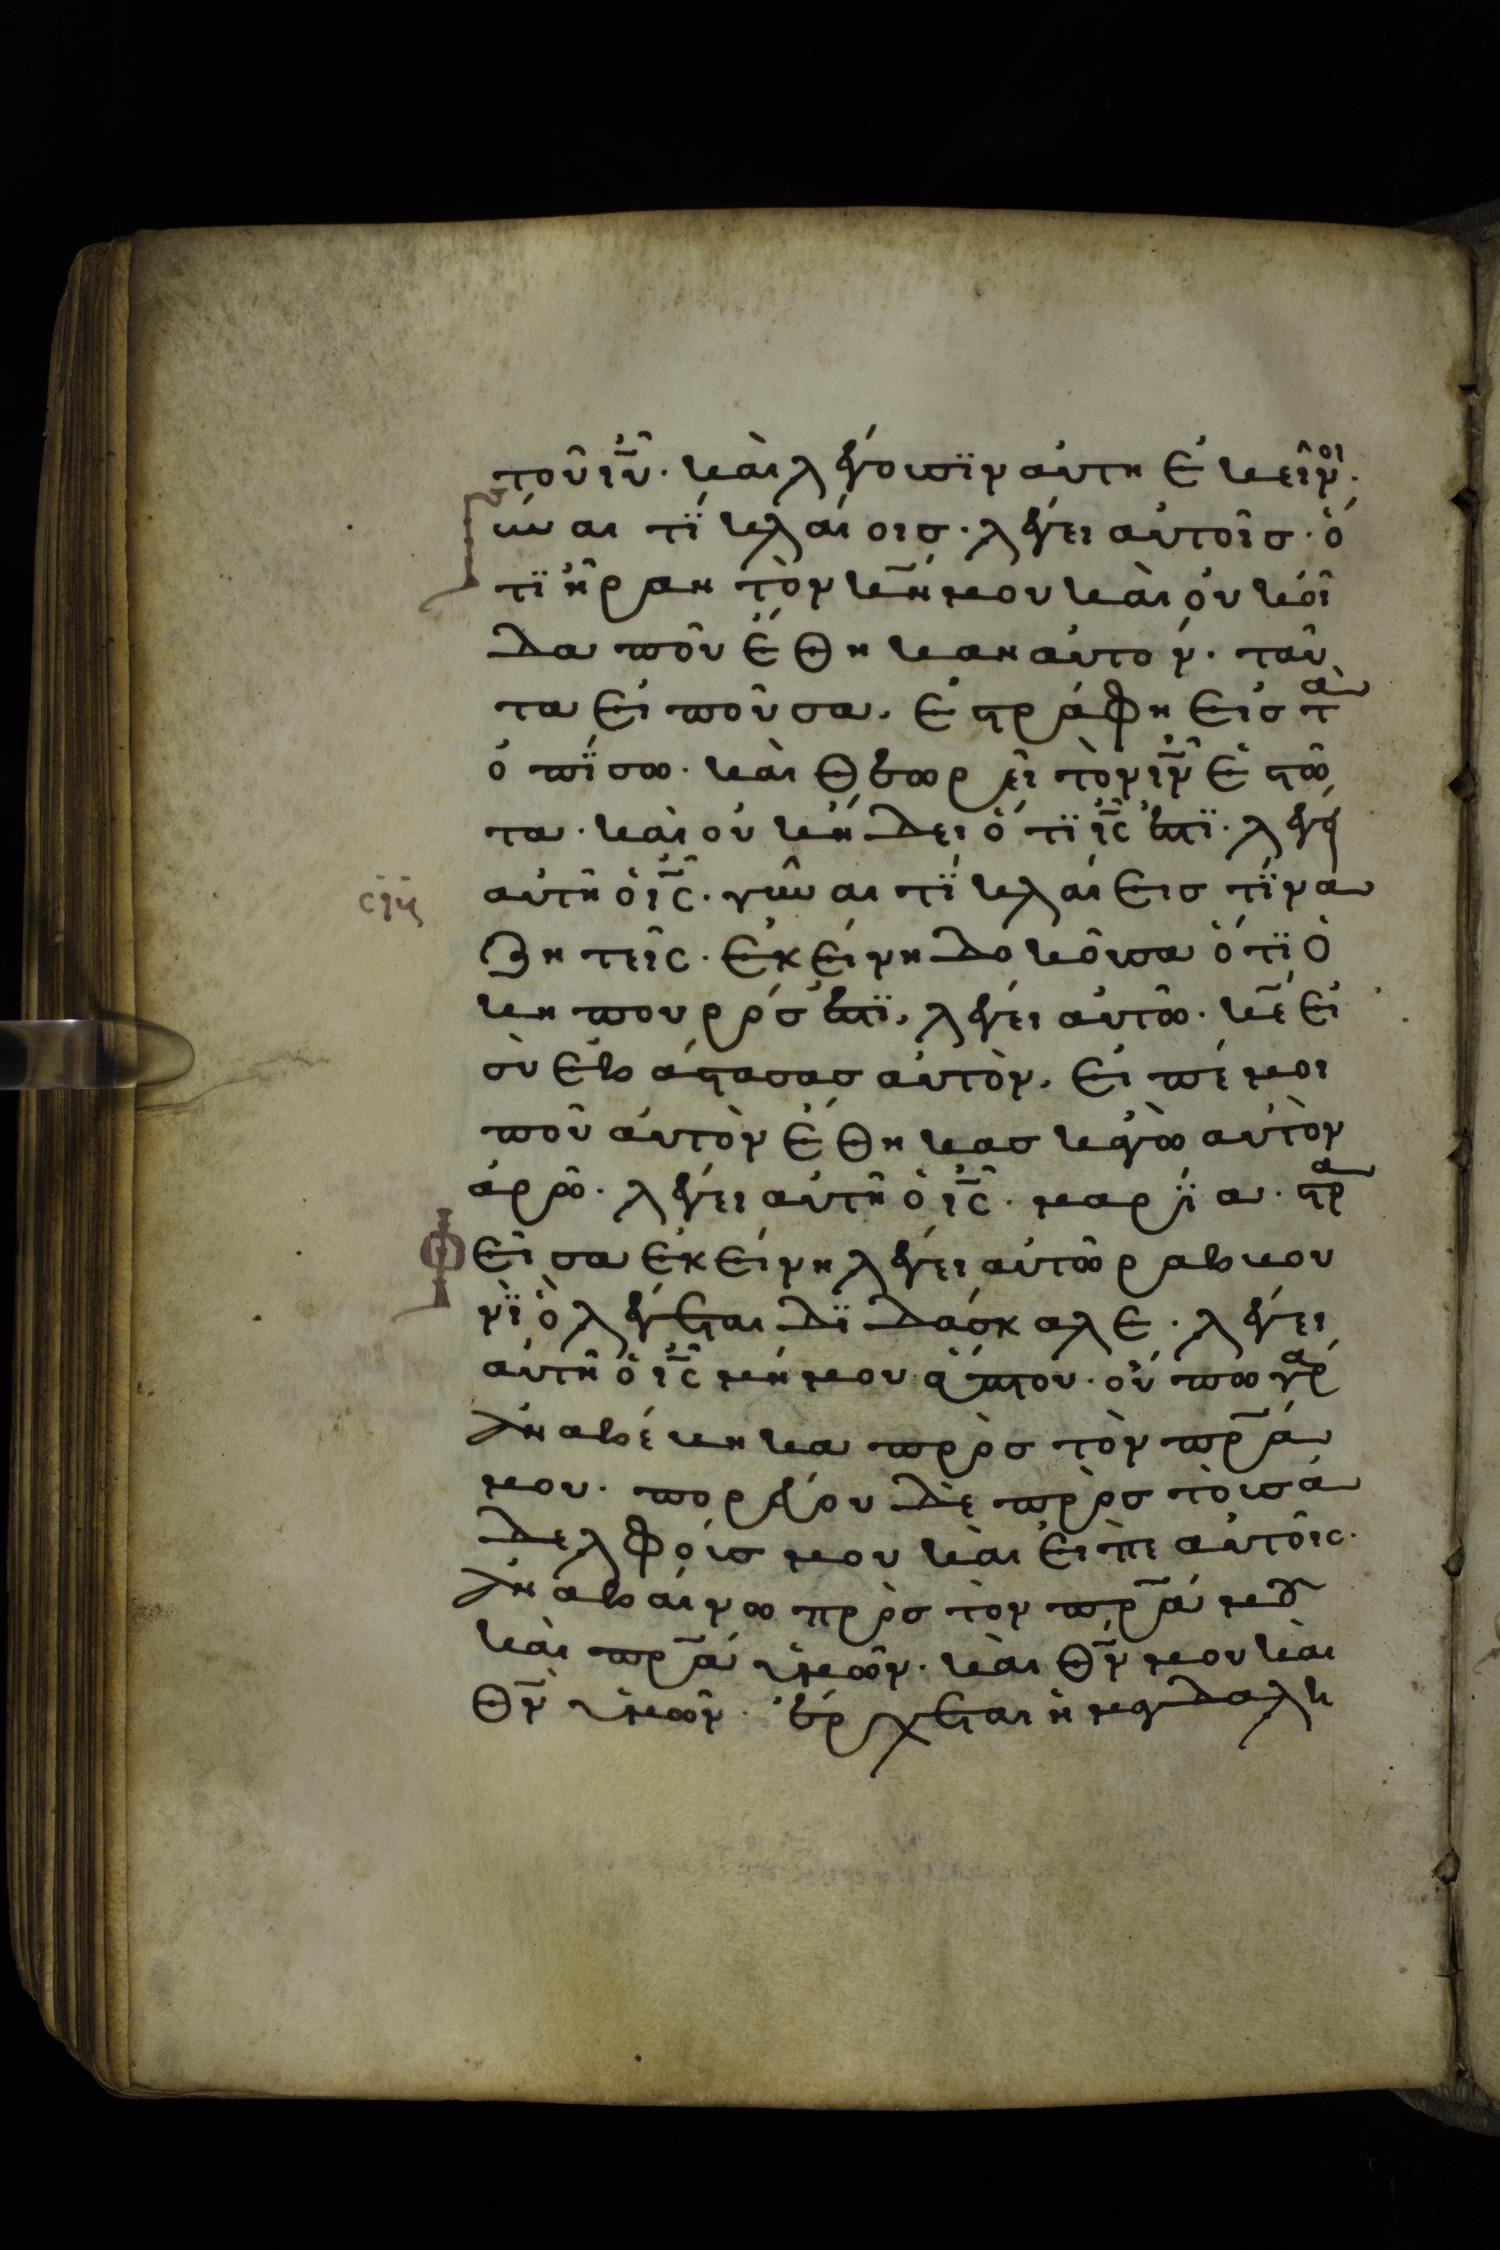 τοῦ ἰῦ· καὶ λέγουσϊν αὐτη ἐκεῖνοι·
γύναι τί κλαίοις· λέγει αὐτοῖς· ὅ
τϊ ἦραν τὸν κν̄ μου καὶ οὐκ οἶ
δα ποῦ ἔθηκαν αὐτόν· ταῦ
τα εἰποῦσα, ἐστράφη εἰς τὰ
ὀπίσω· καὶ θεωρεῖ τὸν ιν̄ ἑστῶ
τα· καὶ οὐκ ἤδει ὅτϊ ις̄ ἐστϊ· λέγει
αὐτῆ ὁ ις̄· γύναι τί κλαίεις τίνα
ζητεῖς· ἐκείνη δοκοῦσα ὅτϊ ὁ
κηπουρός ἐστϊ, λέγει αὐτῶ· κε̄ εἰ
σὺ ἐβάστασας αὐτὸν, εἰπέ μοι
ποῦ αὐτὸν ἔθηκας κἀγὼ αὐτὸν
ἀρῶ· λέγει αὐτῆ ὁ ις̄· μαρία· στρα
φεῖσα ἐκείνη λέγει αὐτῶ ραβκου
νὶ ὃ λέγεται διδάσκαλε· λέγει
αὐτῆ ὁ ις̄ μή μου ἅπτου· οὔπω γὰρ
ἀναβέβηκα πρὸς τὸν πρ̄α
μου· πορεύου δὲ πρὸς τοὺς ἀ
δελφούς μου καὶ εἰπὲ αὐτοῖς·
ἀναβαίνω πρὸς τὸν πρ̄α μου
καὶ πρ̄α ὑμῶν· καὶ θν̄ μου καὶ
θν̄ ὑμῶν· ἔρχεται ἡ μαγδαλη